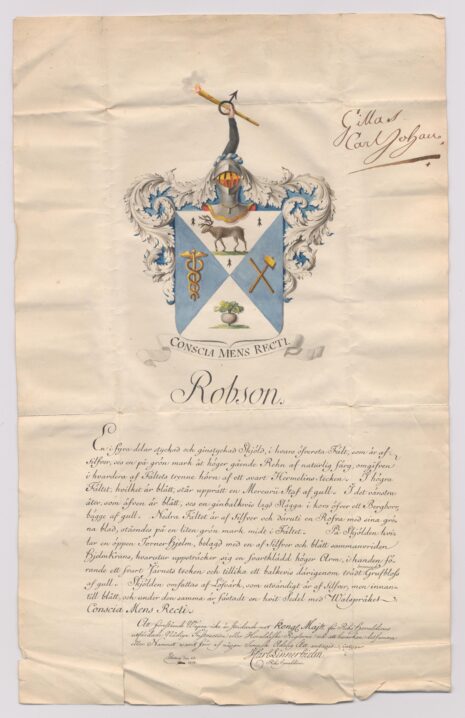 Gillas
Carl Johan.
CONSCIA MENS RECTI.
Robson.
En i fyra delar styckad och ginstyckad Skjöld, i hvars öfversta Fält, som är af
Silfver, ses en på grön mark åt höger gående Rehn af naturlig färg, omgifven
i hvardera af Fältets trenne hörn af ett svart Hermelins tecken. I högra
Fältet, hvilket är blått, står upprätt en Mercurii Staf af gull. I det vänstra
åter, som äfven är blått, ses en ginbalkvis lagd Slägga i kors öfver ett Bergborr,
bägge af gull. Nedra Fältet är af Silfver och deruti en Rofva med sina grö-
na blad, ståendes på en liten grön mark midt i Fältet. På Skjölden hvi-
lar en öppen Torner-Hjelm, belagd med en af Silfver och blått sammanvriden
Hjelmkrans, hvarutur uppsträcker sig en svartklädd höger Arm, i handen fö-
rande ett svart Jernets tecken och tillika ett balkvis därigenom trädt Grufbloss
af gull. Skjölden omfattas af Löfverk, som utvändigt är af Silfver, men innan-
till blått, och under den samma är fästadt en hvit Sedel med Walspråket
Conscia Mens Recti.
Kongl. Majt